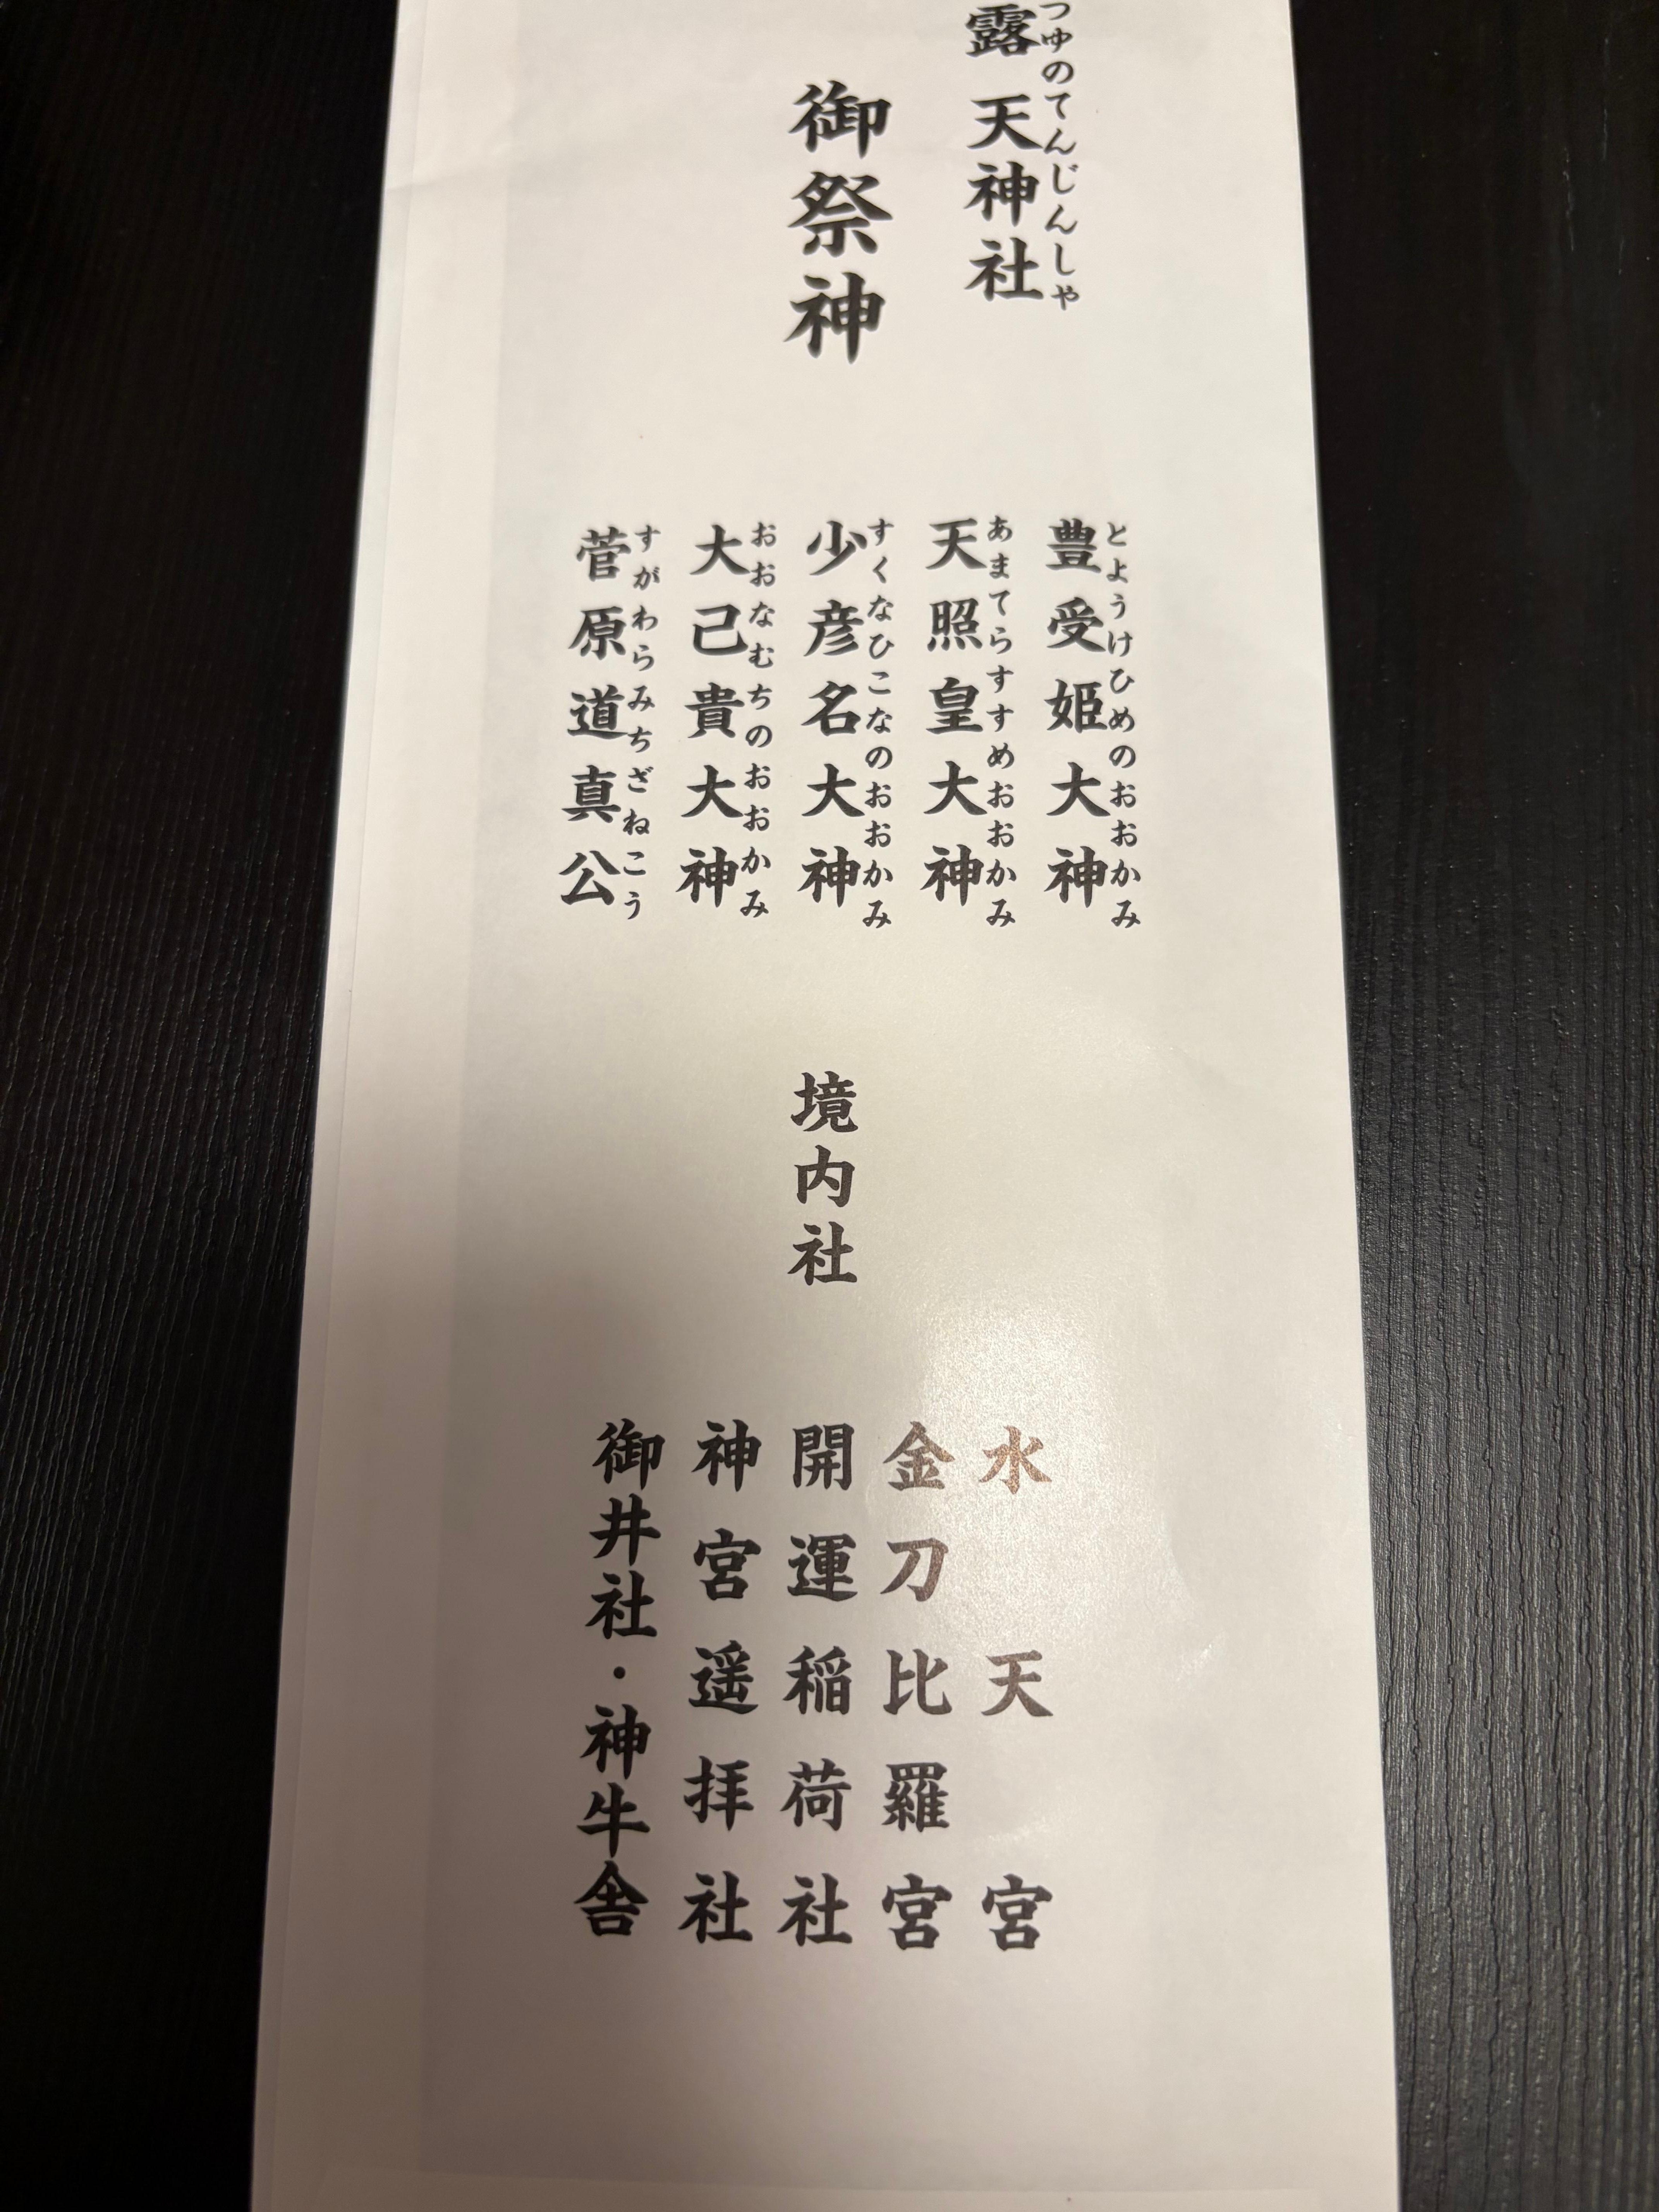 露天神社
つゆのてんじんしや
御祭神
豊受姫大神
とようけひめのおおかみ
天照皇大神
あまてらすすめおおかみ
少彦名大神
すくなひこなのおおかみ
大己貴大神
おおなむちのおおかみ
菅原道真公
すがわらみちざねこう
境内社
水天宮
金刀比羅宮
開運稲荷社
神宮遥拝社
御井社・神牛舎